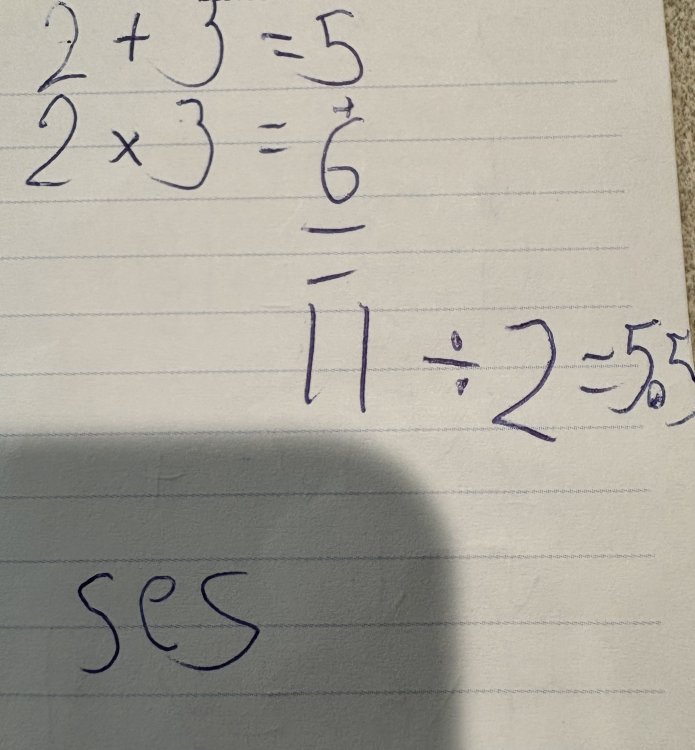 2 + 3 = 5
+
2 × 3 = 6
=
11 ÷ 2 = 5.5
ses